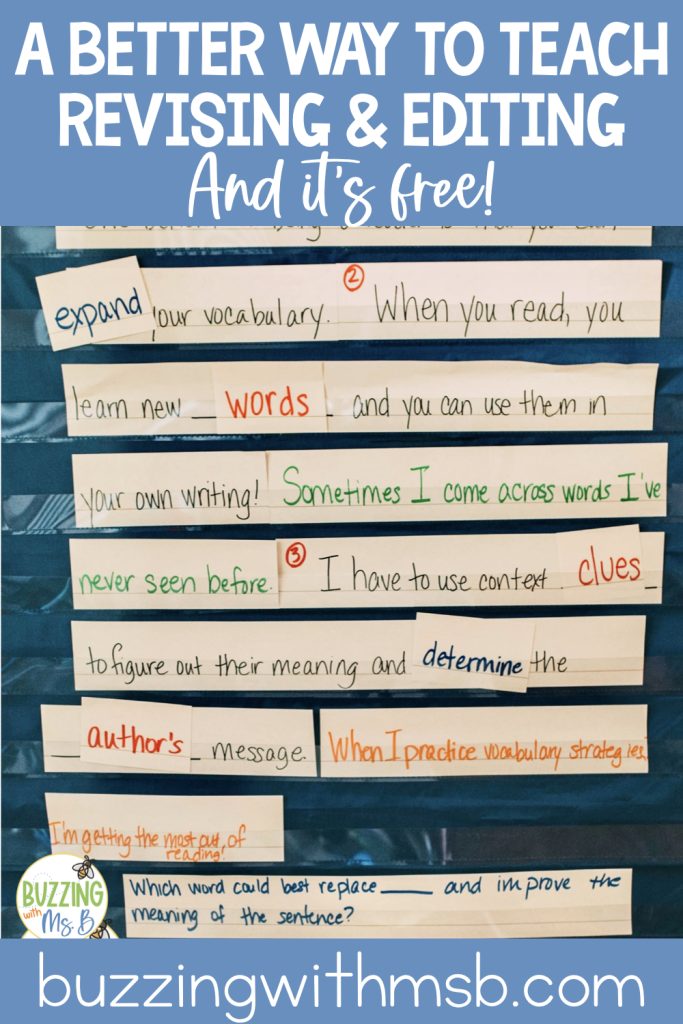 A BETTER WAY TO TEACH
REVISING & EDITING
And it's free!
expand your vocabulary. ② When you read, you
learn new _ words _ and you can use them in
your own writing! Sometimes I come across words I've
never seen before. ③ I have to use context clues _
to figure out their meaning and determine the
_ author's _ message. When I practice vocabulary strategies,
I'm getting the most out of
reading!
BUZZING
with
Ms. B
Which word could best replace ____ and improve the
meaning of the sentence?
buzzingwithmsb.com